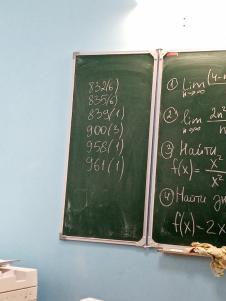 832(6)
835(6)
839(1)
900(3)
958(1)
961(1)
① Lim (4-n
n→∞
② lim 2n²
n→∞
③ Найти
f(x)= x²
x²
④ Найти
f(x)=2x